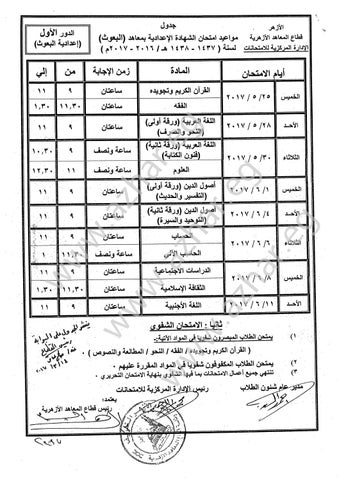 الأزهر
قطاع المعاهد الأزهرية
الإدارة المركزية للامتحانات
جدول
مواعيد امتحان الشهادة الإعدادية بمعاهد (البعوث)
لسنة ( ١٤٣٧ - ١٤٣٨ هـ / ٢٠١٦ - ٢٠١٧ م )
الدور الأول
إعدادية البعوث
أيام الامتحان المادة زمن الإجابة من إلي
الخميس ٢٥ / ٥ / ٢٠١٧ القرآن الكريم وتجويده ساعتان ٩ ١١
الفقه ساعتان ١١.٣٠ ١.٣٠
الأحد ٢٨ / ٥ / ٢٠١٧ اللغة العربية (ورقة أولى) (النحو والصرف) ساعتان ٩ ١١
الثلاثاء ٣٠ / ٥ / ٢٠١٧ اللغة العربية (ورقة ثانية) (فنون الكتابة) ساعة ونصف ٩ ١٠.٣٠
العلوم ساعة ونصف ١١ ١٢.٣٠
الخميس ١ / ٦ / ٢٠١٧ أصول الدين (ورقة أولى) (التفسير والحديث) ساعتان ٩ ١١
الأحد ٤ / ٦ / ٢٠١٧ أصول الدين (ورقة ثانية) (التوحيد والسيرة) ساعتان ٩ ١١
الثلاثاء ٦ / ٦ / ٢٠١٧ الحساب ساعتان ٩ ١١
الحاسب الآلي ساعة ونصف
الخميس ٨ / ٦ / ٢٠١٧ الدراسات الاجتماعية ساعتان ٩ ١١
الثقافة الإسلامية ساعتان ١١.٣٠ ١.٣٠
الأحد ١١ / ٦ / ٢٠١٧ اللغة الأجنبية ساعتان ٩ ١١
ثانيا : الامتحان الشفوي
١) يمتحن الطلاب المبصرون شفويا في المواد الآتية:
( القرآن الكريم وتجويده / الفقه / النحو / المطالعة والنصوص )
٢) يمتحن الطلاب المكفوفون شفويا في المواد المقررة عليهم
٣) تنتهي جميع أعمال الامتحانات بما فيها الشفوي بنهاية الامتحان التحريري
مدير عام شئون الطلاب
رئيس الإدارة المركزية للامتحانات
يعتمد؛
رئيس قطاع المعاهد الأزهرية
www.azhar.eg